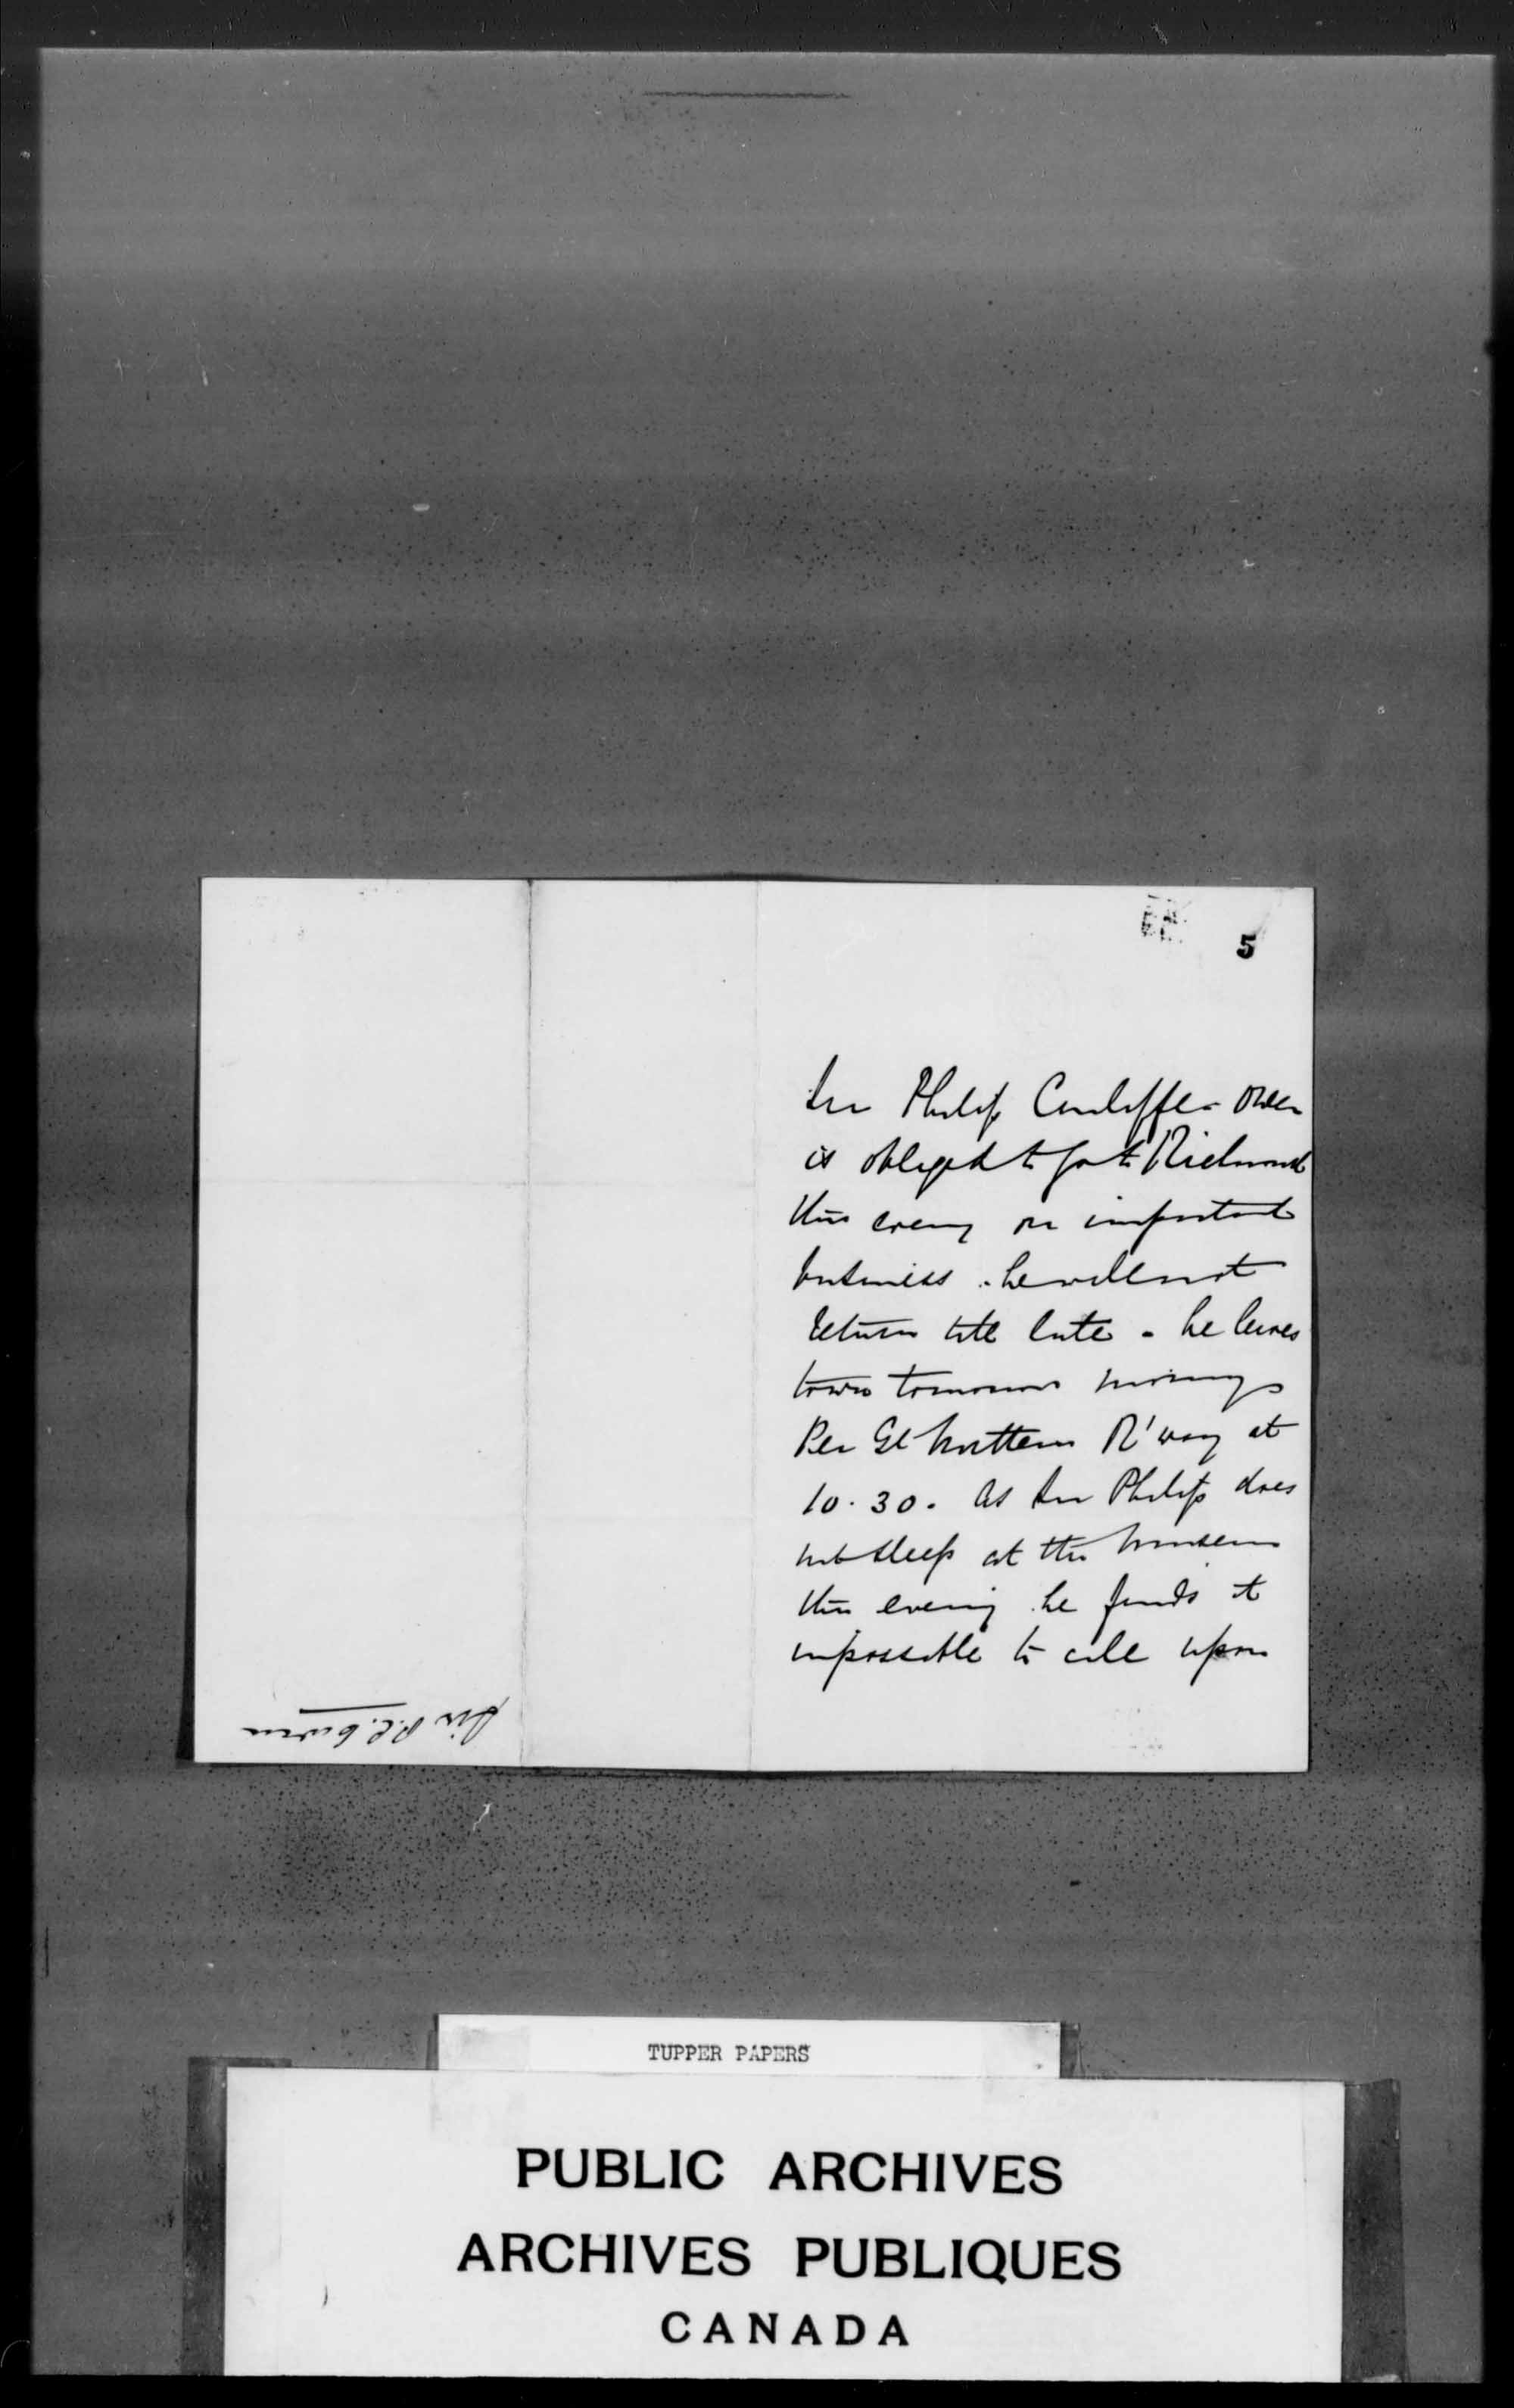 5
Sir Philip Cunliffe-Owen
is obliged to go to Richmond
this evening on important
business. he will not
return till late - he leaves
town tomorrow morning
Per Gt Northern R'way at
10.30. As Sir Philip does
not sleep at the Museum
this evening he finds it
impossible to call upon
Sir P.C. Owen
TUPPER PAPERS
PUBLIC ARCHIVES
ARCHIVES PUBLIQUES
CANADA